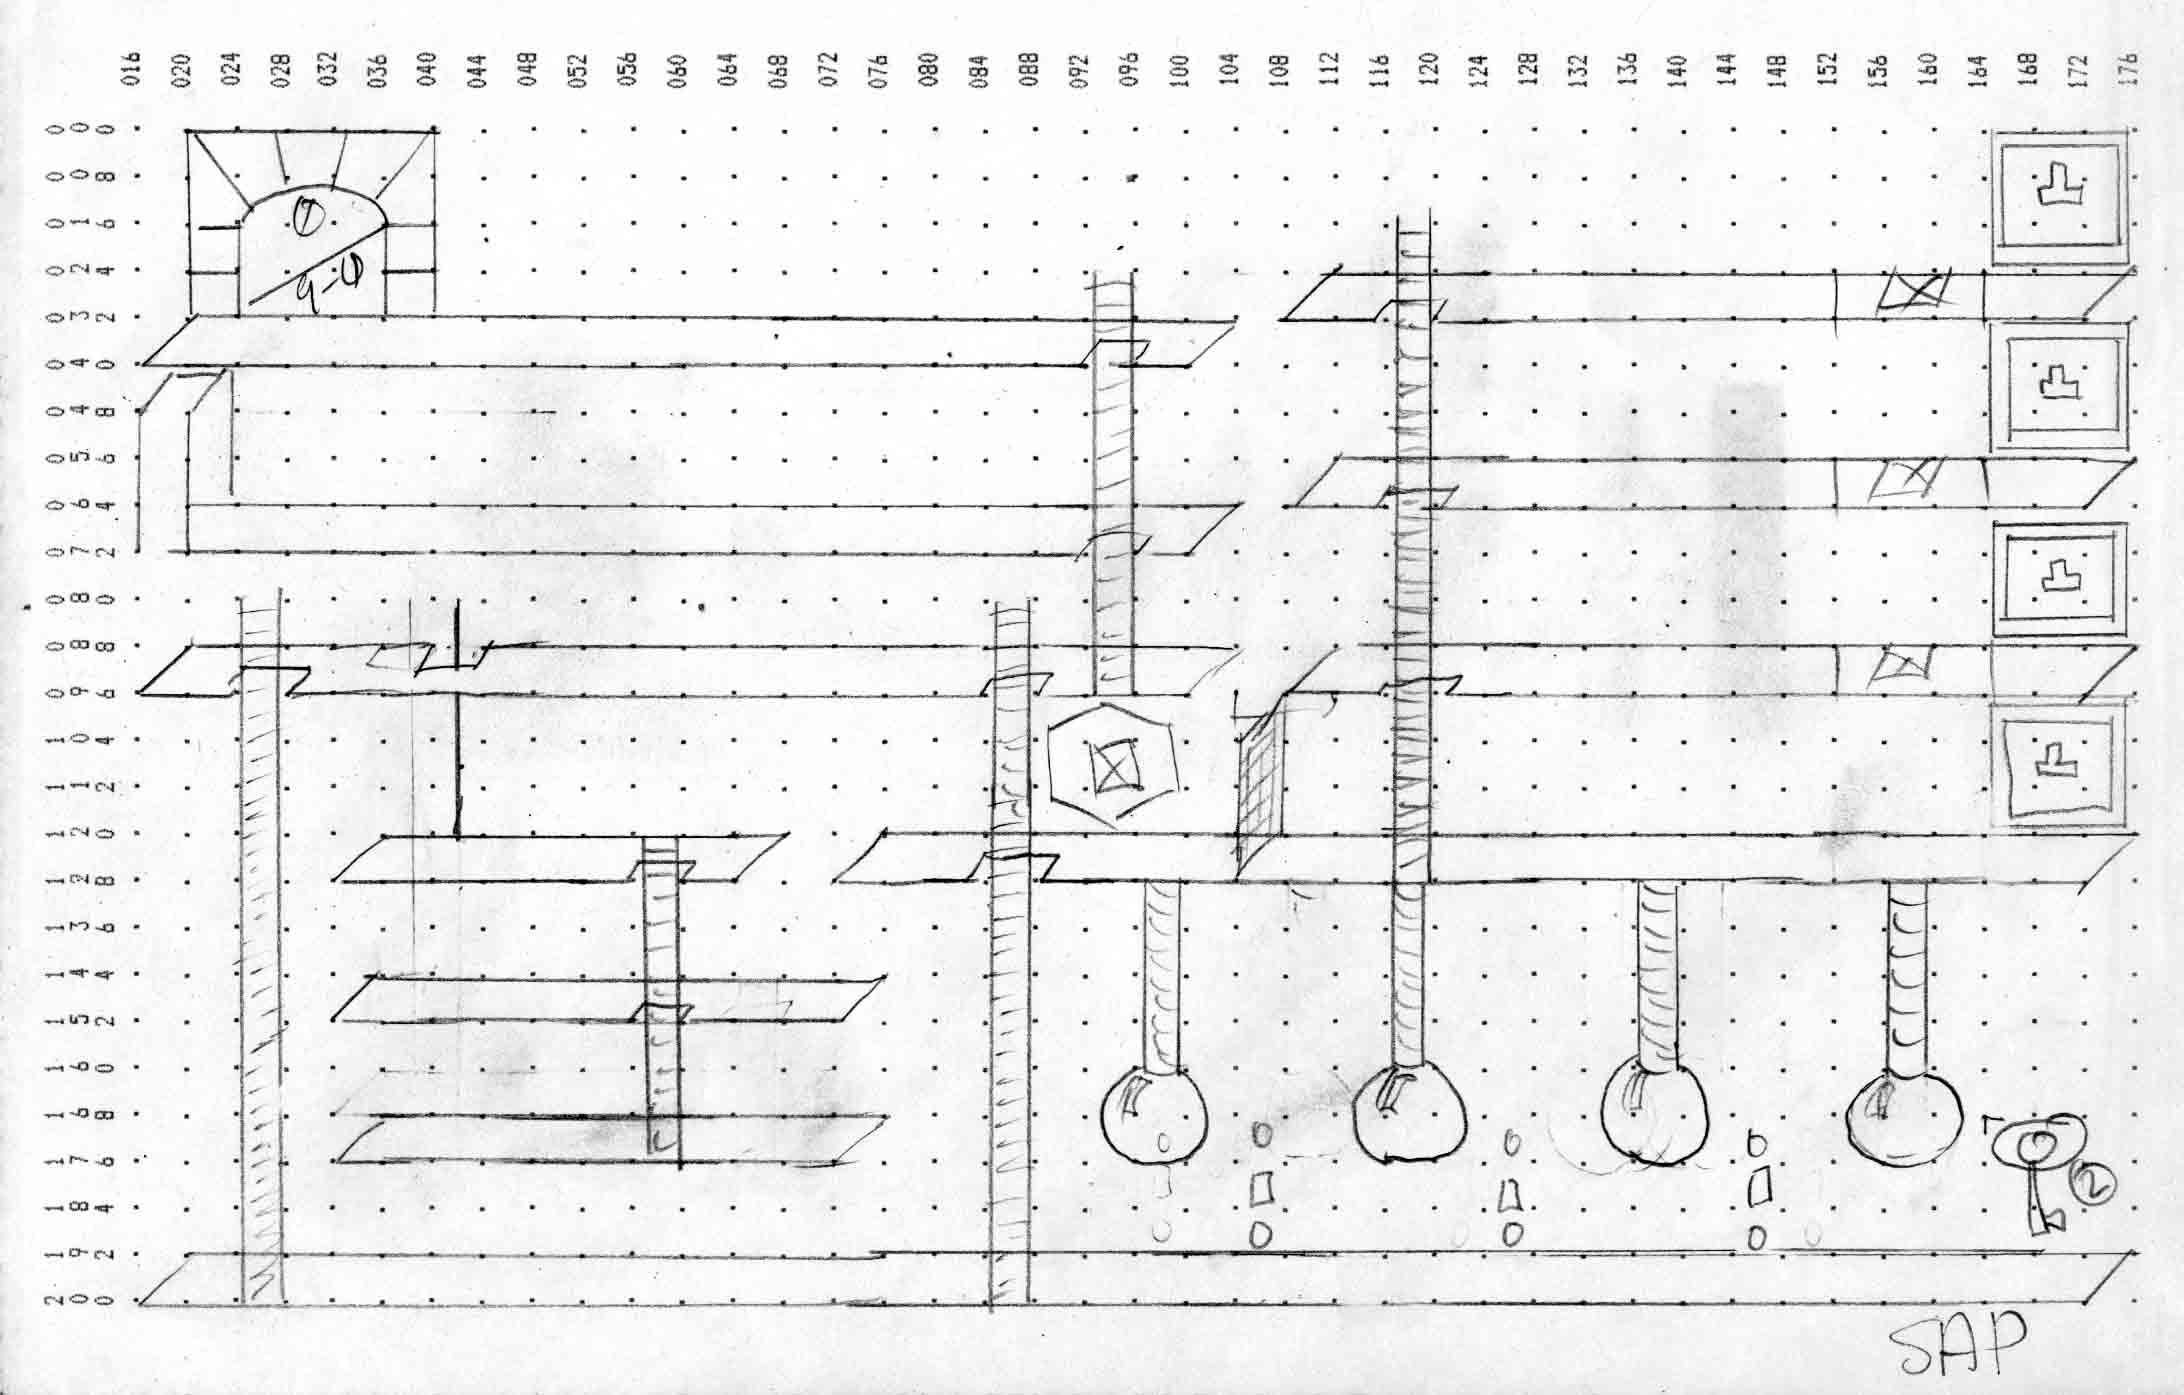 016 020 024 028 032 036 040 044 048 052 056 060 064 068 072 076 080 084 088 092 096 100 104 108 112 116 120 124 128 132 136 140 144 148 152 156 160 164 168 172 176
000
008
016
024
032
040
048
056
064
072
080
088
096
104
112
120
128
136
144
152
160
168
176
184
192
200
2
SAP